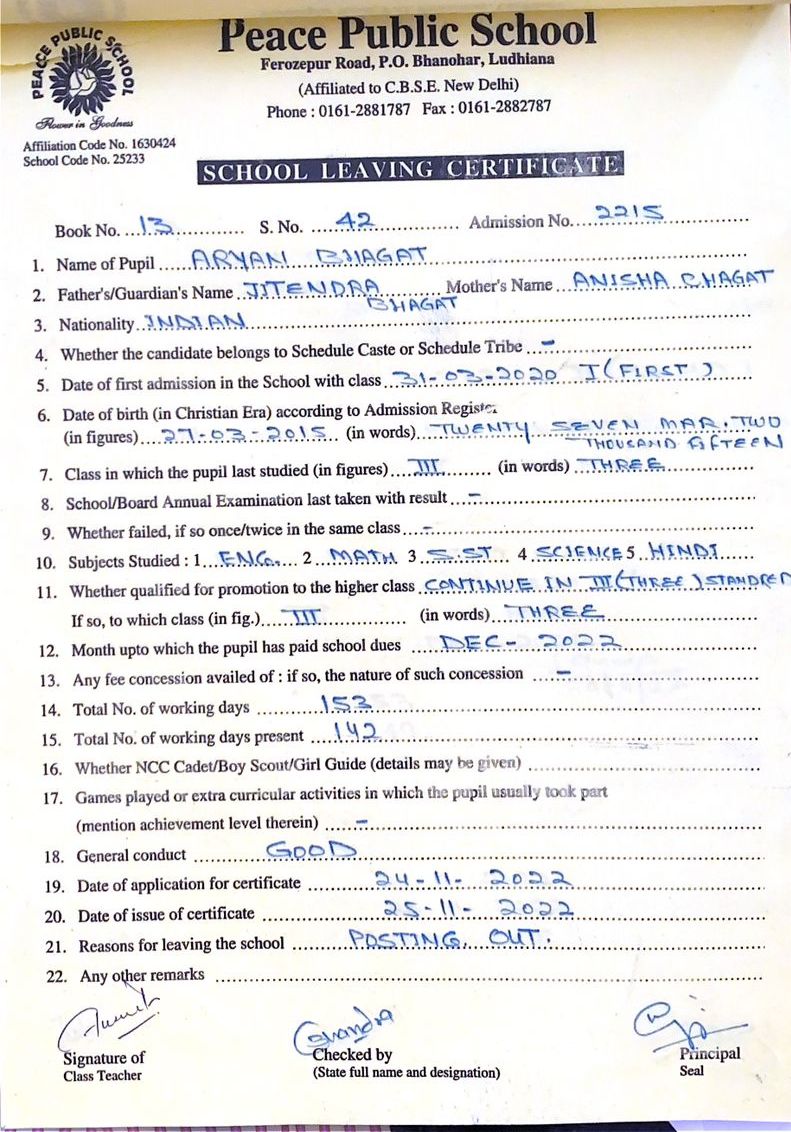 PEACE PUBLIC SCHOOL
Flower in Goodness
Affiliation Code No. 1630424
School Code No. 25233
Peace Public School
Ferozepur Road, P.O. Bhanohar, Ludhiana
(Affiliated to C.B.S.E. New Delhi)
Phone : 0161-2881787 Fax : 0161-2882787
SCHOOL LEAVING CERTIFICATE
Book No. 13 S. No. 42 Admission No. 2215
1. Name of Pupil ARYAN BHAGAT
2. Father's/Guardian's Name JITENDRA BHAGAT Mother's Name ANISHA BHAGAT
3. Nationality INDIAN
4. Whether the candidate belongs to Schedule Caste or Schedule Tribe -
5. Date of first admission in the School with class 31-03-2020 I (FIRST)
6. Date of birth (in Christian Era) according to Admission Register
(in figures) 27-03-2015 (in words) TWENTY SEVEN MAR. TWO
THOUSAND FIFTEEN
7. Class in which the pupil last studied (in figures) III (in words) THREE
8. School/Board Annual Examination last taken with result -
9. Whether failed, if so once/twice in the same class -
10. Subjects Studied : 1 ENG. 2 MATH 3 S.ST 4 SCIENCE 5 HINDI
11. Whether qualified for promotion to the higher class CONTINUE IN III (THREE) STANDRED
If so, to which class (in fig.) III (in words) THREE
12. Month upto which the pupil has paid school dues DEC - 2022
13. Any fee concession availed of : if so, the nature of such concession -
14. Total No. of working days 153
15. Total No. of working days present 142
16. Whether NCC Cadet/Boy Scout/Girl Guide (details may be given)
17. Games played or extra curricular activities in which the pupil usually took part
(mention achievement level therein) -
18. General conduct GOOD
19. Date of application for certificate 24-11-2022
20. Date of issue of certificate 25-11-2022
21. Reasons for leaving the school POSTING OUT.
22. Any other remarks
Signature of
Class Teacher
Checked by
(State full name and designation)
Principal
Seal